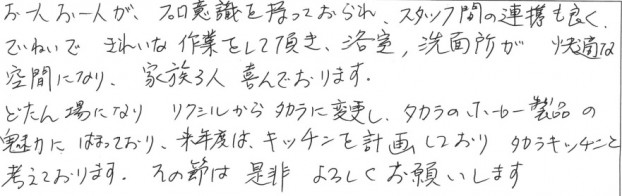 お一人お一人が、プロ意識を持っておられ、スタッフ間の連携も良く、
ていねいで きれいな 作業をして頂き、浴室,洗面所が 快適な
空間になり、家族3人 喜んでおります。
どたん場になり リクシルから タカラに変更し、タカラのホーロー製品の
魅力に はまっており、来年度は、キッチンを計画しており タカラキッチンと
考えております。その節は 是非 よろしくお願いします